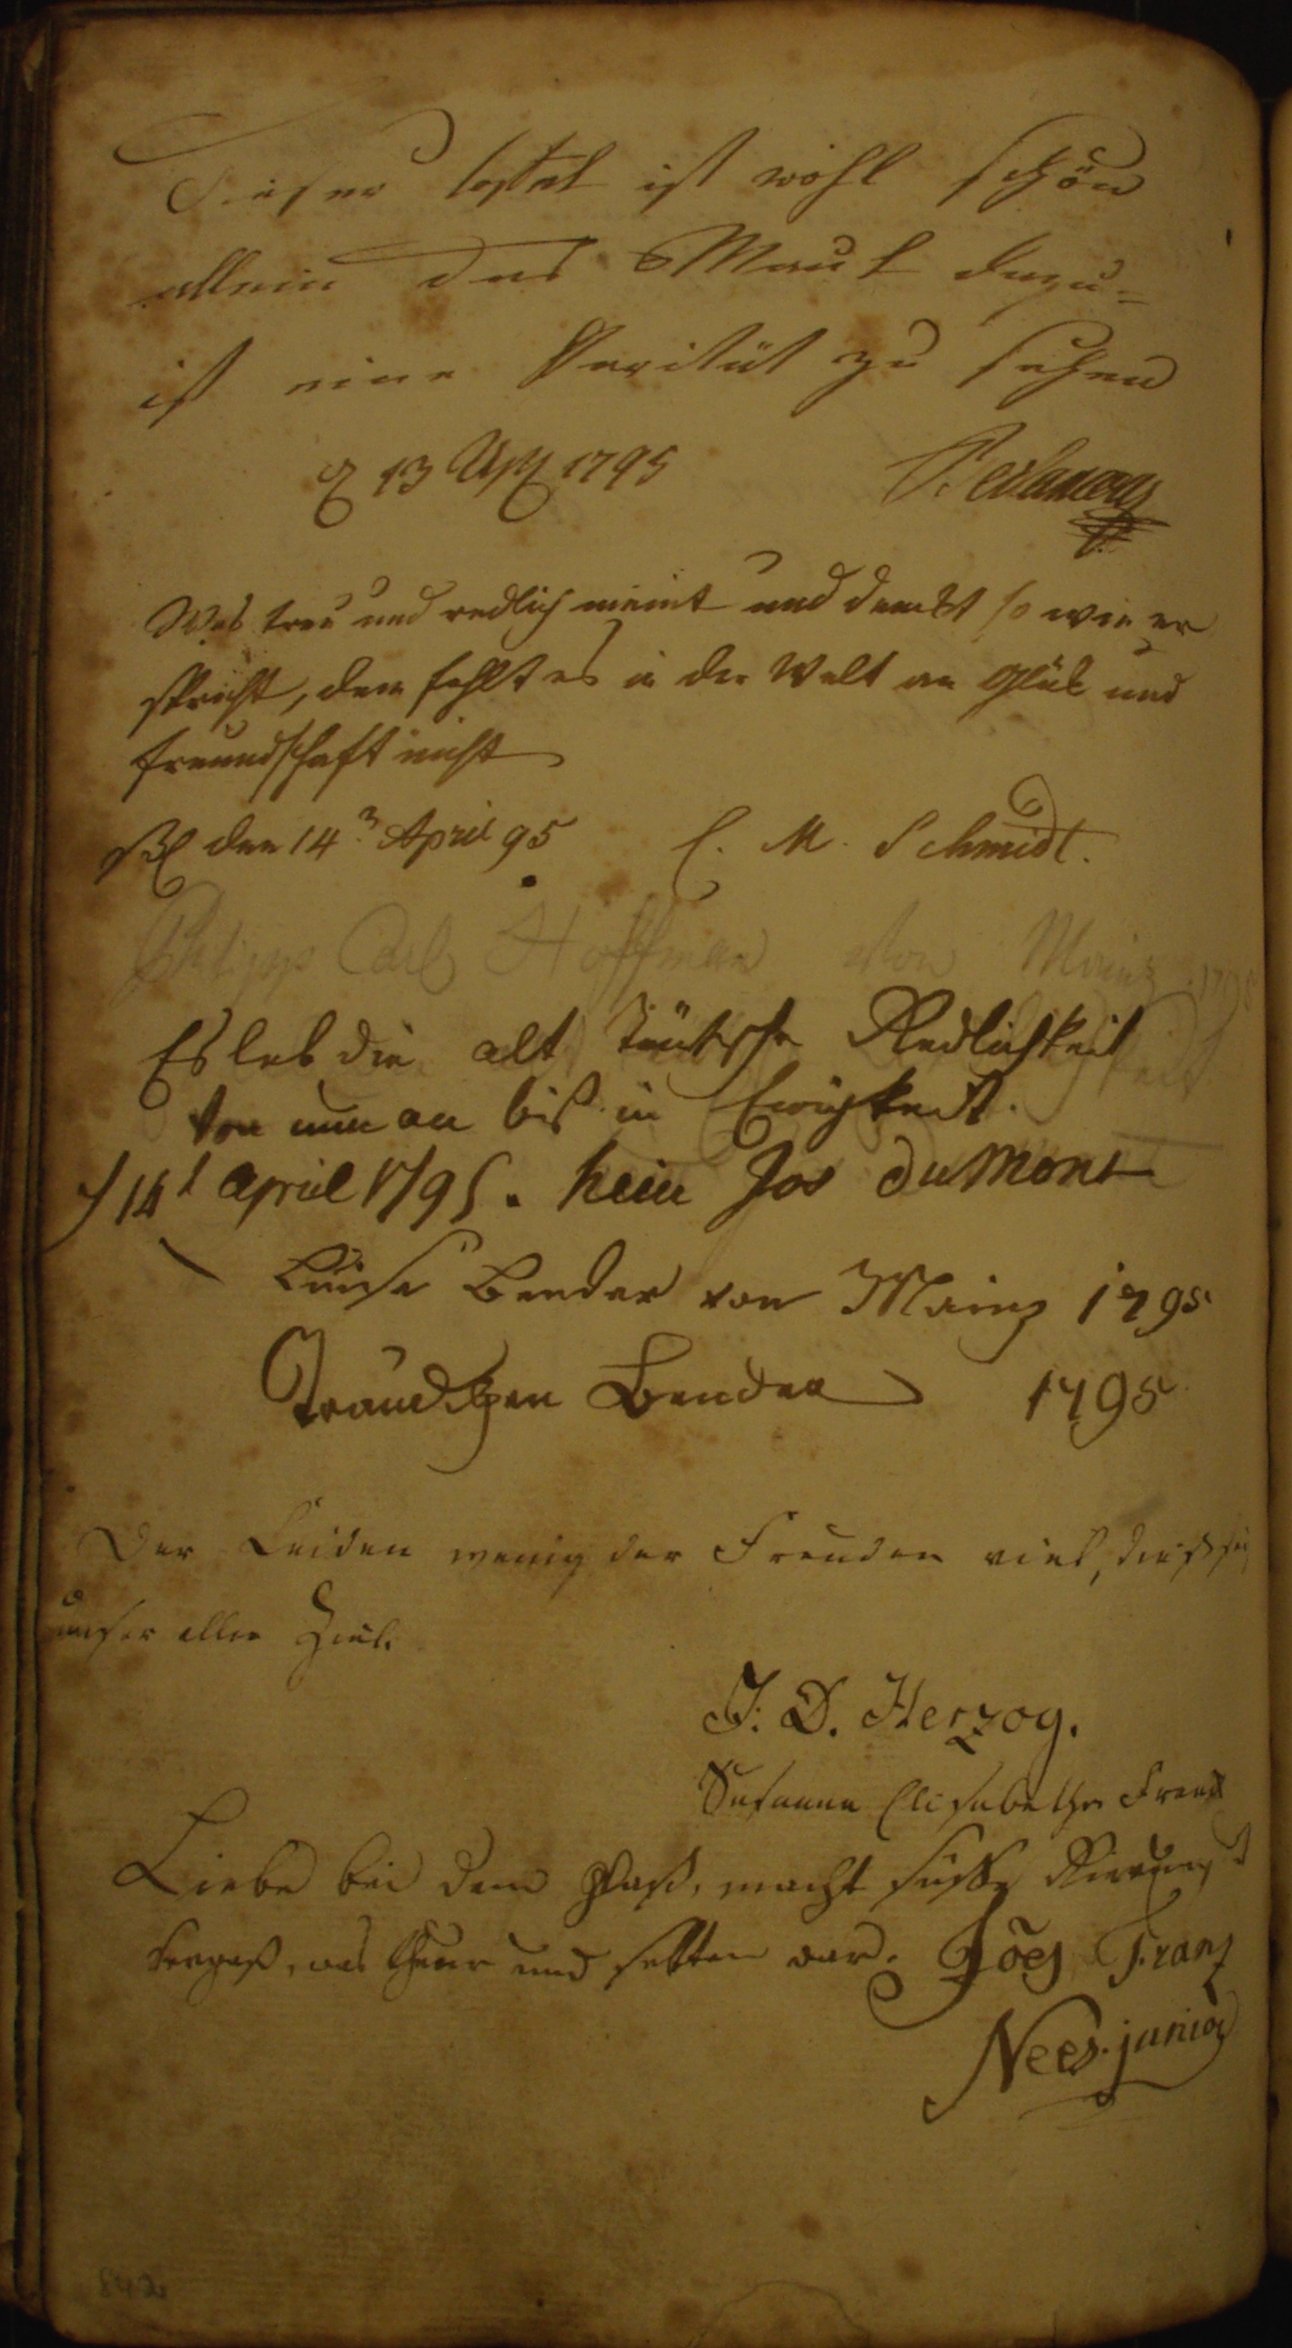 Dieser ist wohl schön
allein das Maul dazu=
ist eine Rarität zu sehen
13 1795
Wer treu und redlich meint und denckt so wie er
spricht, dem fehlt es in der Welt an Glük und
freundschaft nicht
den 14 April 95 C. M. Schmidt.
Philipp Carl Hoffman von Mainz 1795
Es leb die alt teutsche Redlichkeit
Von nun an biß in Ewigkeit.
14t April 1795. hein Jos du Mont
Luise Bender von Mainz 1795
Traudchen Bender 1795
Der Leiden wenig der Freuden viel, dieß sei
unser aller Ziel.
J. D. Herzog.
Susanna Elisabetha
Liebe bei dem macht süsse
was theuer und selten war. Joes Franz
Nees junior